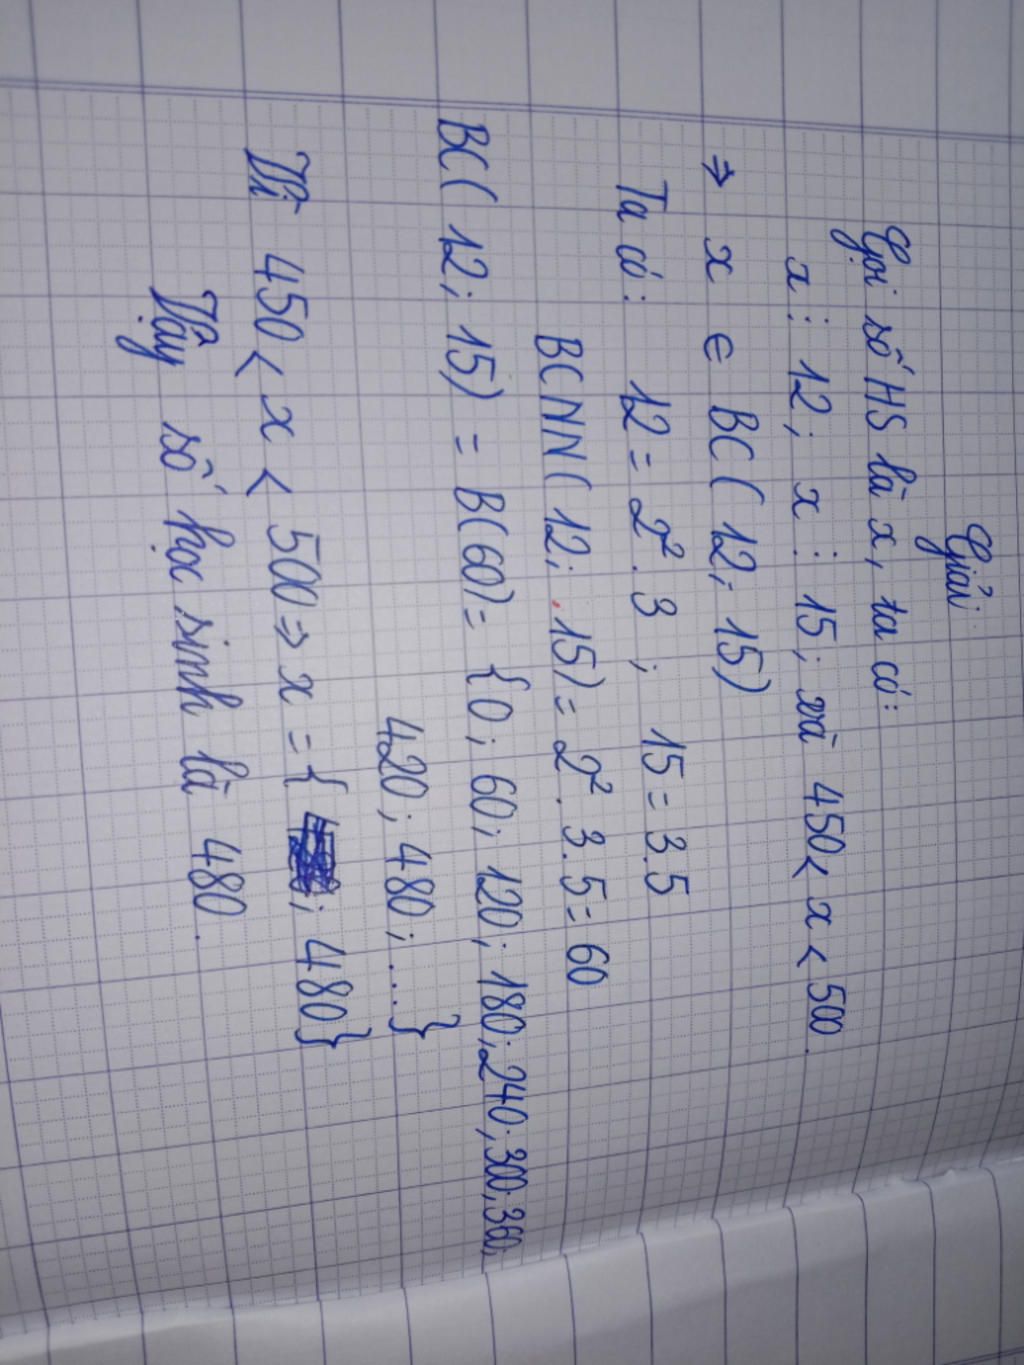 Giải:
Gọi số HS là x, ta có:
x ⋮ 12; x ⋮ 15; và 450 < x < 500.
⇒ x ∈ BC(12; 15)
Ta có: 12 = 2². 3 ; 15 = 3.5
BCNN(12; 15) = 2². 3.5 = 60
BC(12; 15) = B(60) = {0; 60; 120; 180; 240; 300; 360;
420; 480; ....}
Vì 450 < x < 500 ⇒ x = { ; 480}
Vậy số học sinh là 480.